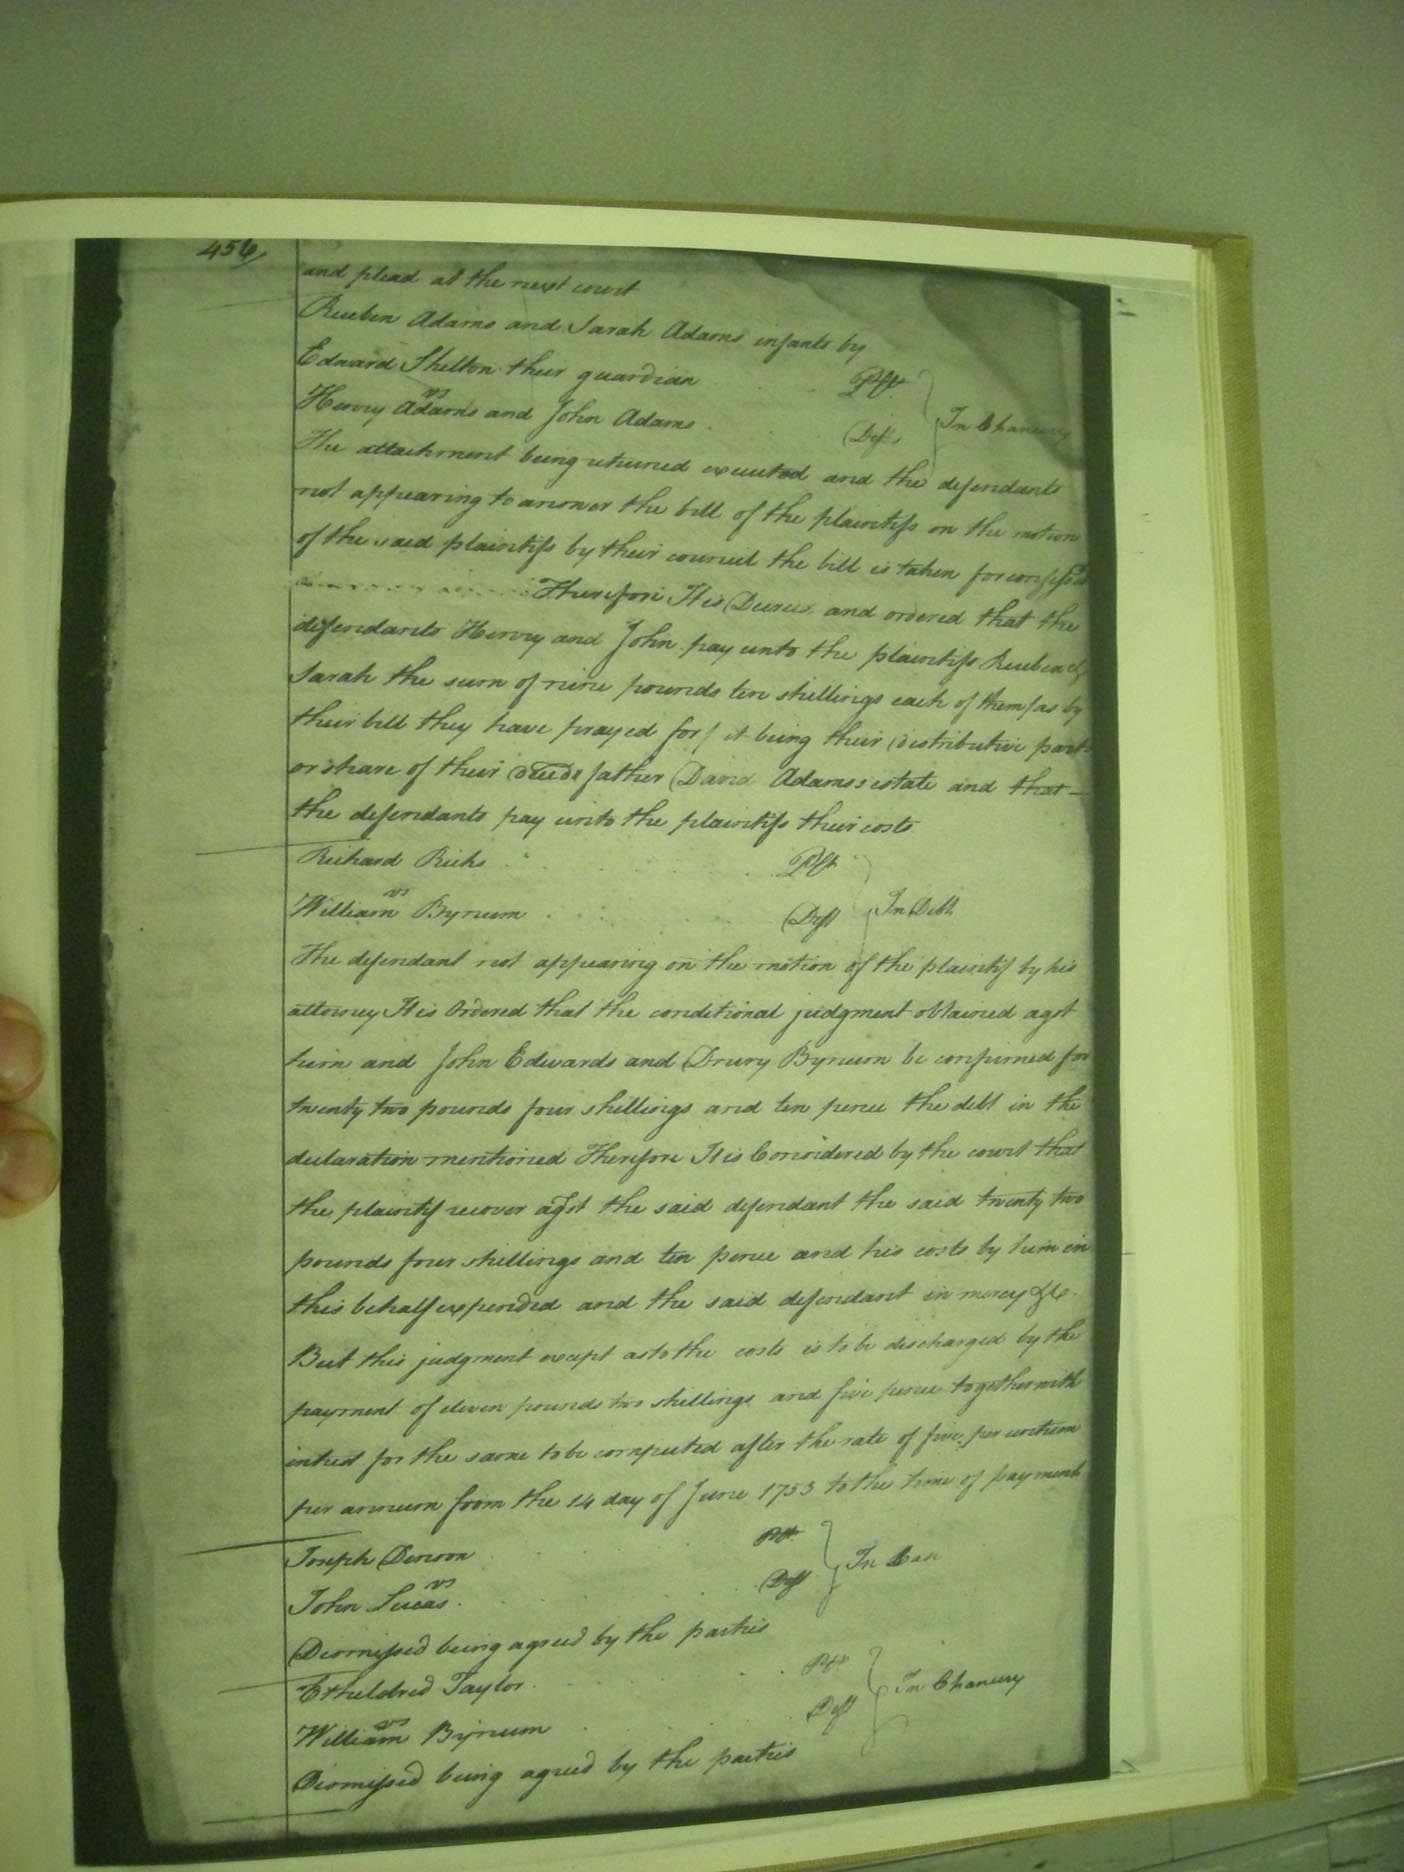 456
and plead at the next court
Reuben Adams and Sarah Adams infants by
Edward Shelton their guardian Plts.
vs
Henry Adams and John Adams Defts In Chancery
The attachment being returned executed and the defendants
not appearing to answer the bill of the plaintifs on the motion
of the said plaintifs by their council the bill is taken for confessed
Therefore It is Decred and ordered that the
defendants Henry and John pay unto the plaintifs Reuben &
Sarah the sum of nine pounds ten shillings each of them (as by
their bill they have prayed for) it being their distributive part
or share of their decds father David Adams's estate and that
the defendants pay unto the plaintifs their costs
Richard Ricks Plt
vs
William Bynum Deft In Debt
The defendant not appearing on the motion of the plaintif by his
attorney It is Ordered that the conditional judgment obtained agst
him and John Edwards and Drury Bynum be confirmed for
twenty two pounds four shillings and ten pence the debt in the
declaration mentioned Therefore It is Considered by the court that
the plaintif recover agst the said defendant the said twenty two
pounds four shillings and ten pence and his costs by him in
this behalf expended and the said defendant in mercy &c.
But this judgment except as to the costs is to be discharged by the
payment of eleven pounds two shillings and five pence together with
intrest for the same to be computed after the rate of five per centum
per annum from the 14 day of June 1753 to the time of payment
Joseph Denson Plt.
vs
John Lucas. Deft In Case
Dismissed being agreed by the parties
Etheldred Taylor Plt
vs
William Bynum Deft In Chancery
Dismissed being agreed by the parties